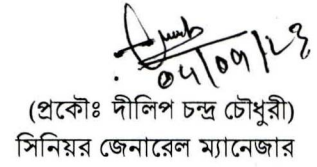 ০৫/০৭/২৩
(প্রকৌঃ দীলিপ চন্দ্র চৌধুরী)
সিনিয়র জেনারেল ম্যানেজার